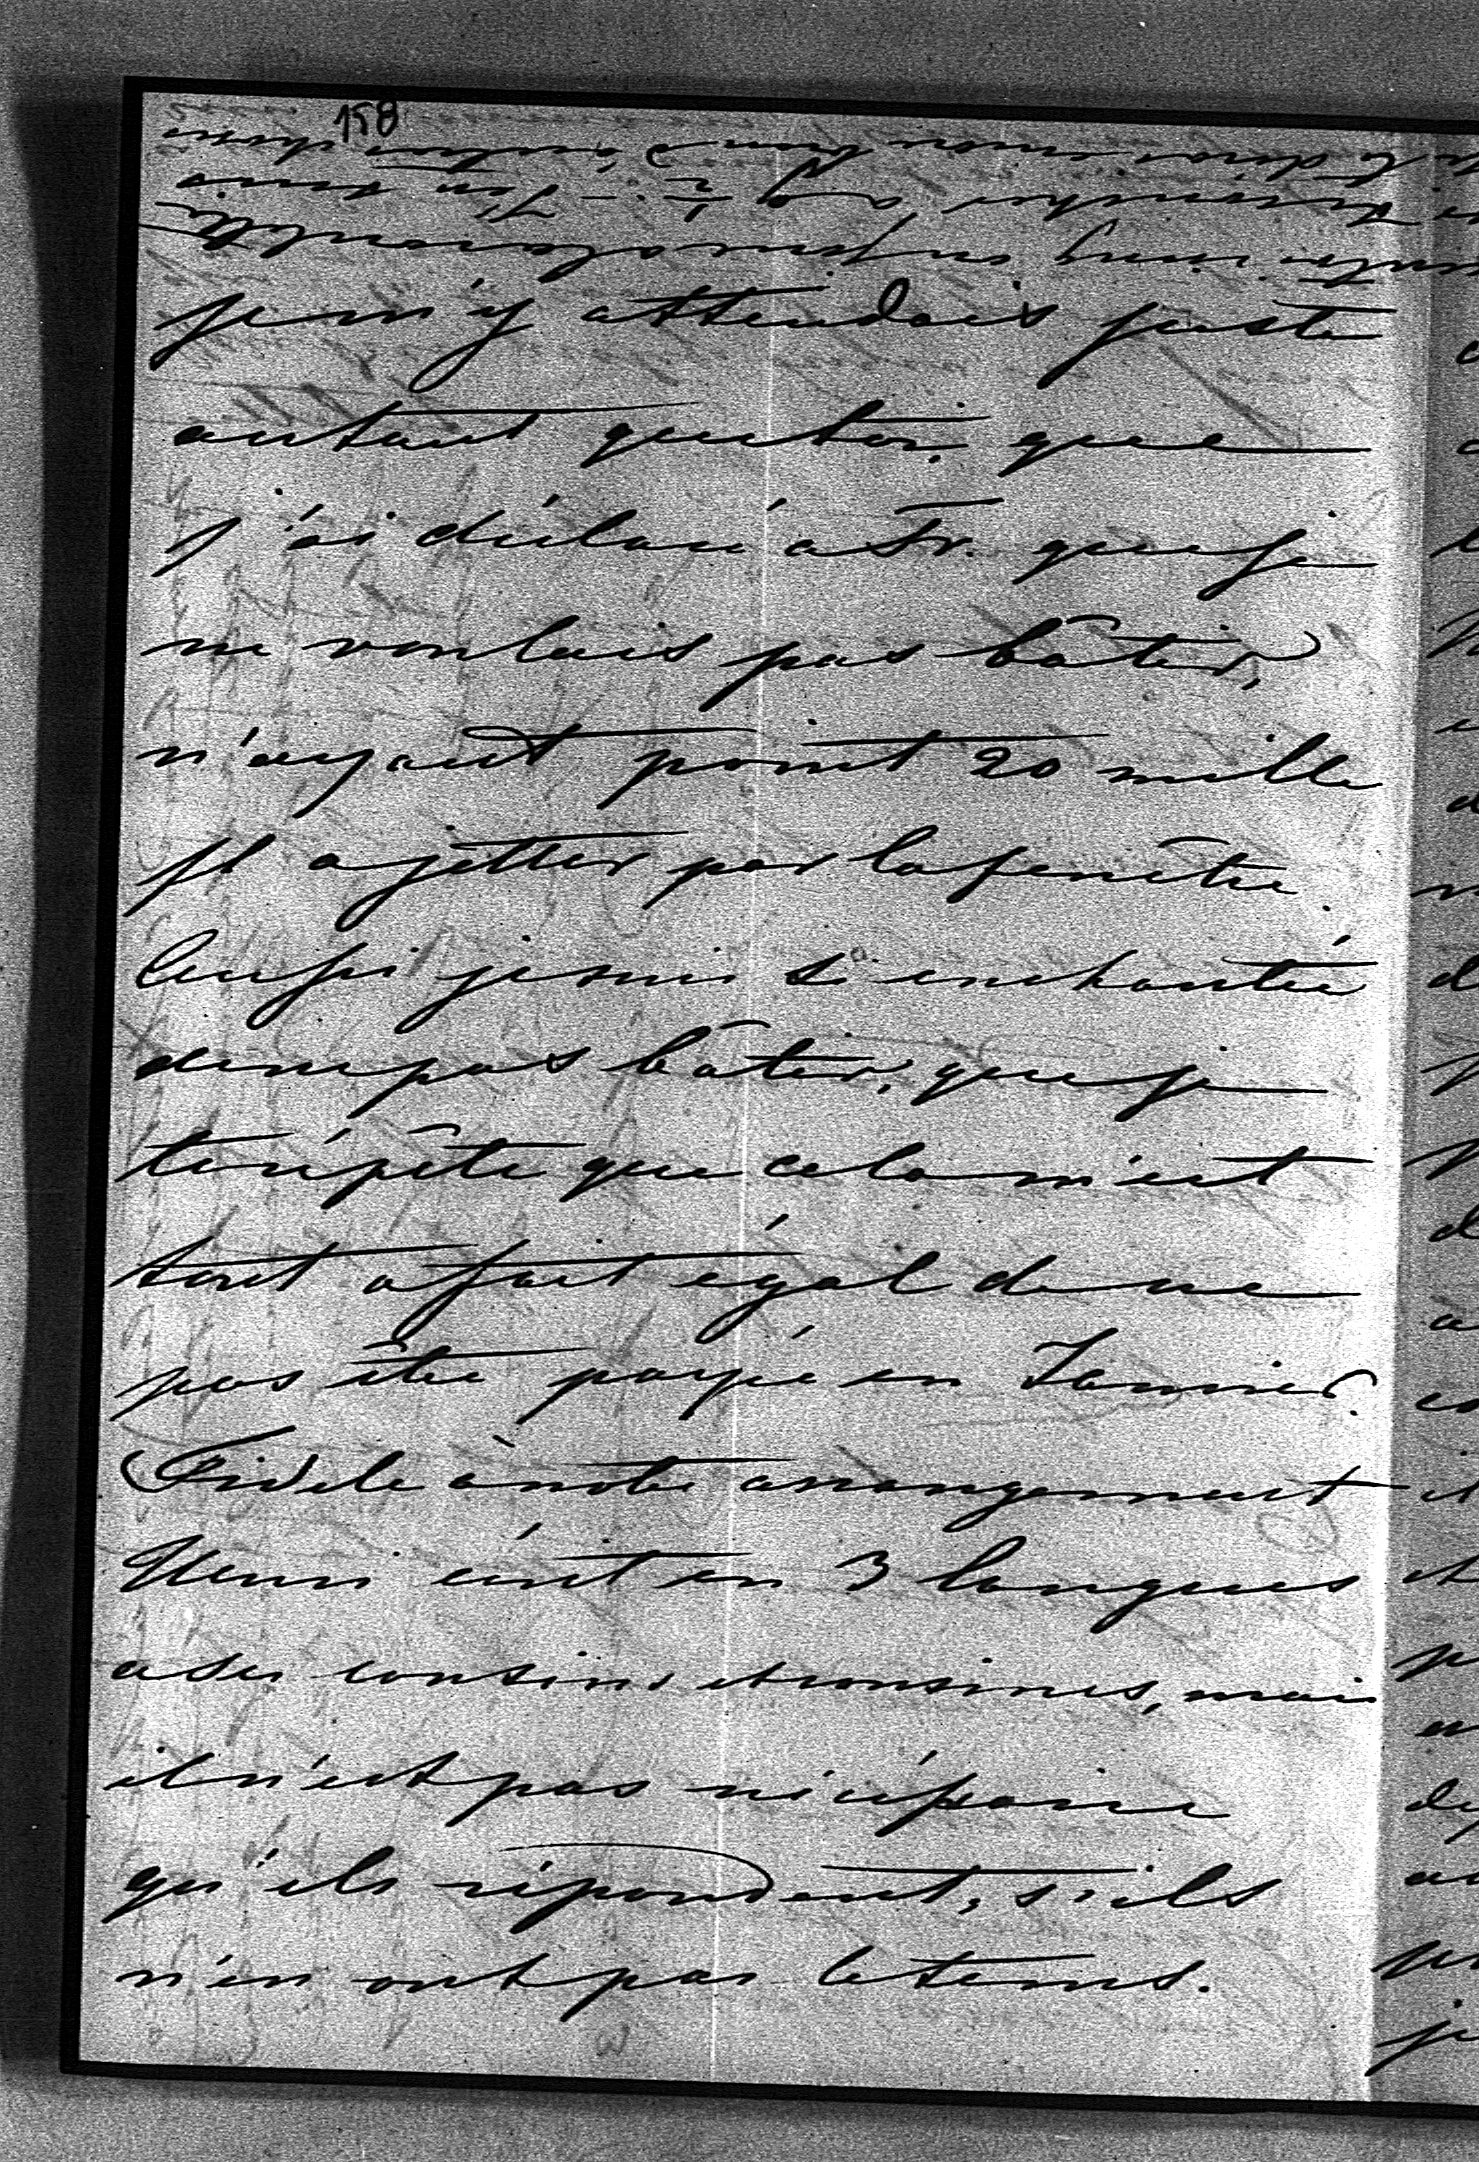 158
je m'y attendais juste
autant que toi, que
j'ai déclaré à Fr. que je
ne voulais pas bâtir,
n'ayant point 20 mille
fl a jetter par la fenêtre.
je suis si enchantée
de ne pas bâtir, que je
te répète que cela m'est
tout a fait égal de ne
pas être payé en Janvier.
Fidele à notre arrangement
Henri écrit en 3 langues
a ses cousins et cousines, mais
il n'est pas nécessaire
qu'ils répondent, s'ils
n'en ont pas le tems.